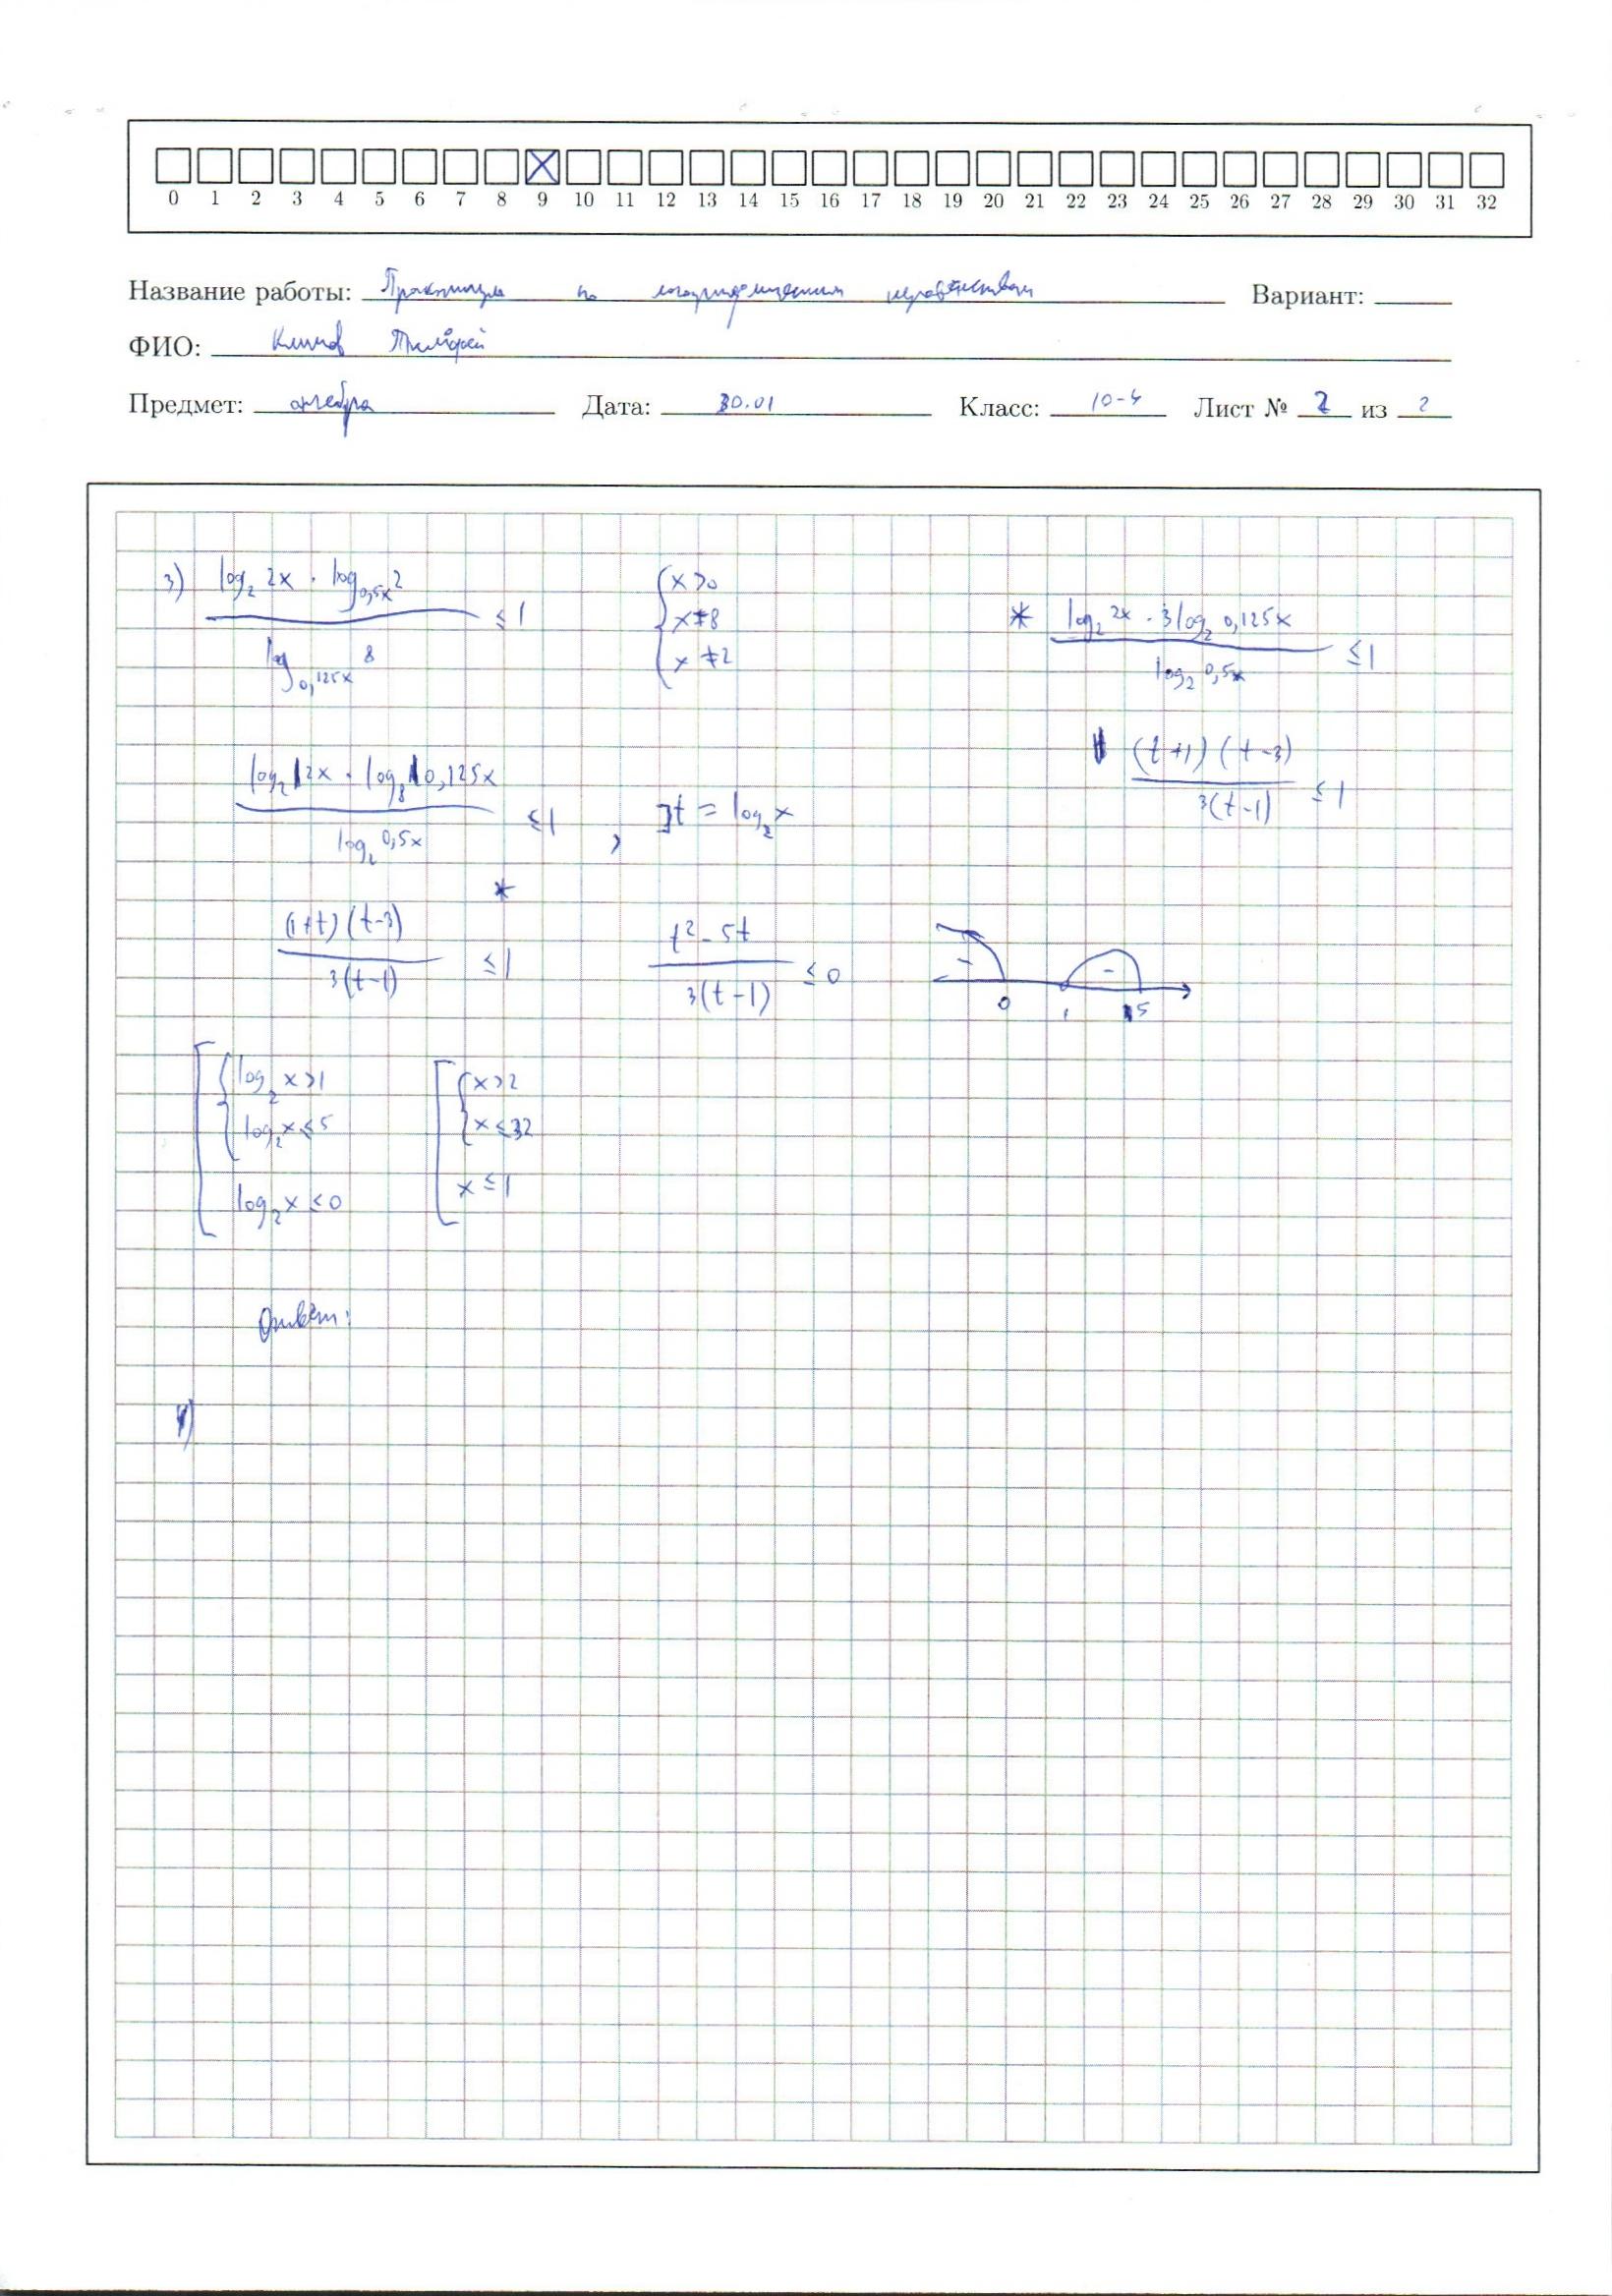 0 1 2 3 4 5 6 7 8 9 10 11 12 13 14 15 16 17 18 19 20 21 22 23 24 25 26 27 28 29 30 31 32
Название работы: Практикум по логарифмическим неравенствам Вариант:
ФИО: Климов Тимофей
Предмет: алгебра Дата: 30.01 Класс: 10-4 Лист № 2 из 2
3) (log₂ 2x · log_{0,5x} 2) / (log_{0,125x} 8) ≤ 1
{ x > 0
x ≠ 8
x ≠ 2
* (log₂ 2x · 3log₂ 0,125x) / (log₂ 0,5x) ≤ 1
((t+1)(t-3)) / (3(t-1)) ≤ 1
(log₂ 2x · log₈ 0,125x) / (log₂ 0,5x) ≤ 1 , ]t = log₂ x
*
((1+t)(t-3)) / (3(t-1)) ≤ 1
(t² - 5t) / (3(t-1)) ≤ 0
- -
0 1 5
[ { log₂ x > 1
log₂ x ≤ 5
log₂ x ≤ 0
[ { x > 2
x ≤ 32
x ≤ 1
Ответ: